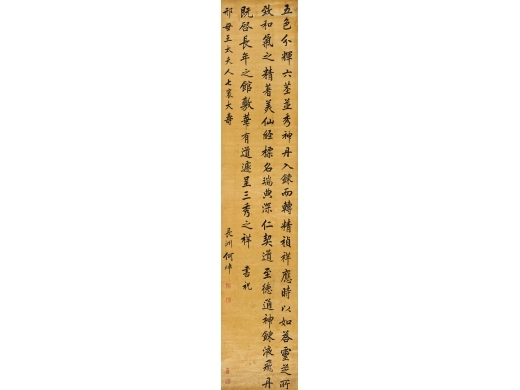 五色分輝六莖並秀神丹入鍊而轉精禎祥應時以如答靈芝所
效和氣之精著美仙經標名瑞典深仁契道至德通神鍊液飛丹
既啓長年之館敷華有道遽呈三秀之祥 書祝
邢母王太夫人七袠大壽
長洲何焯